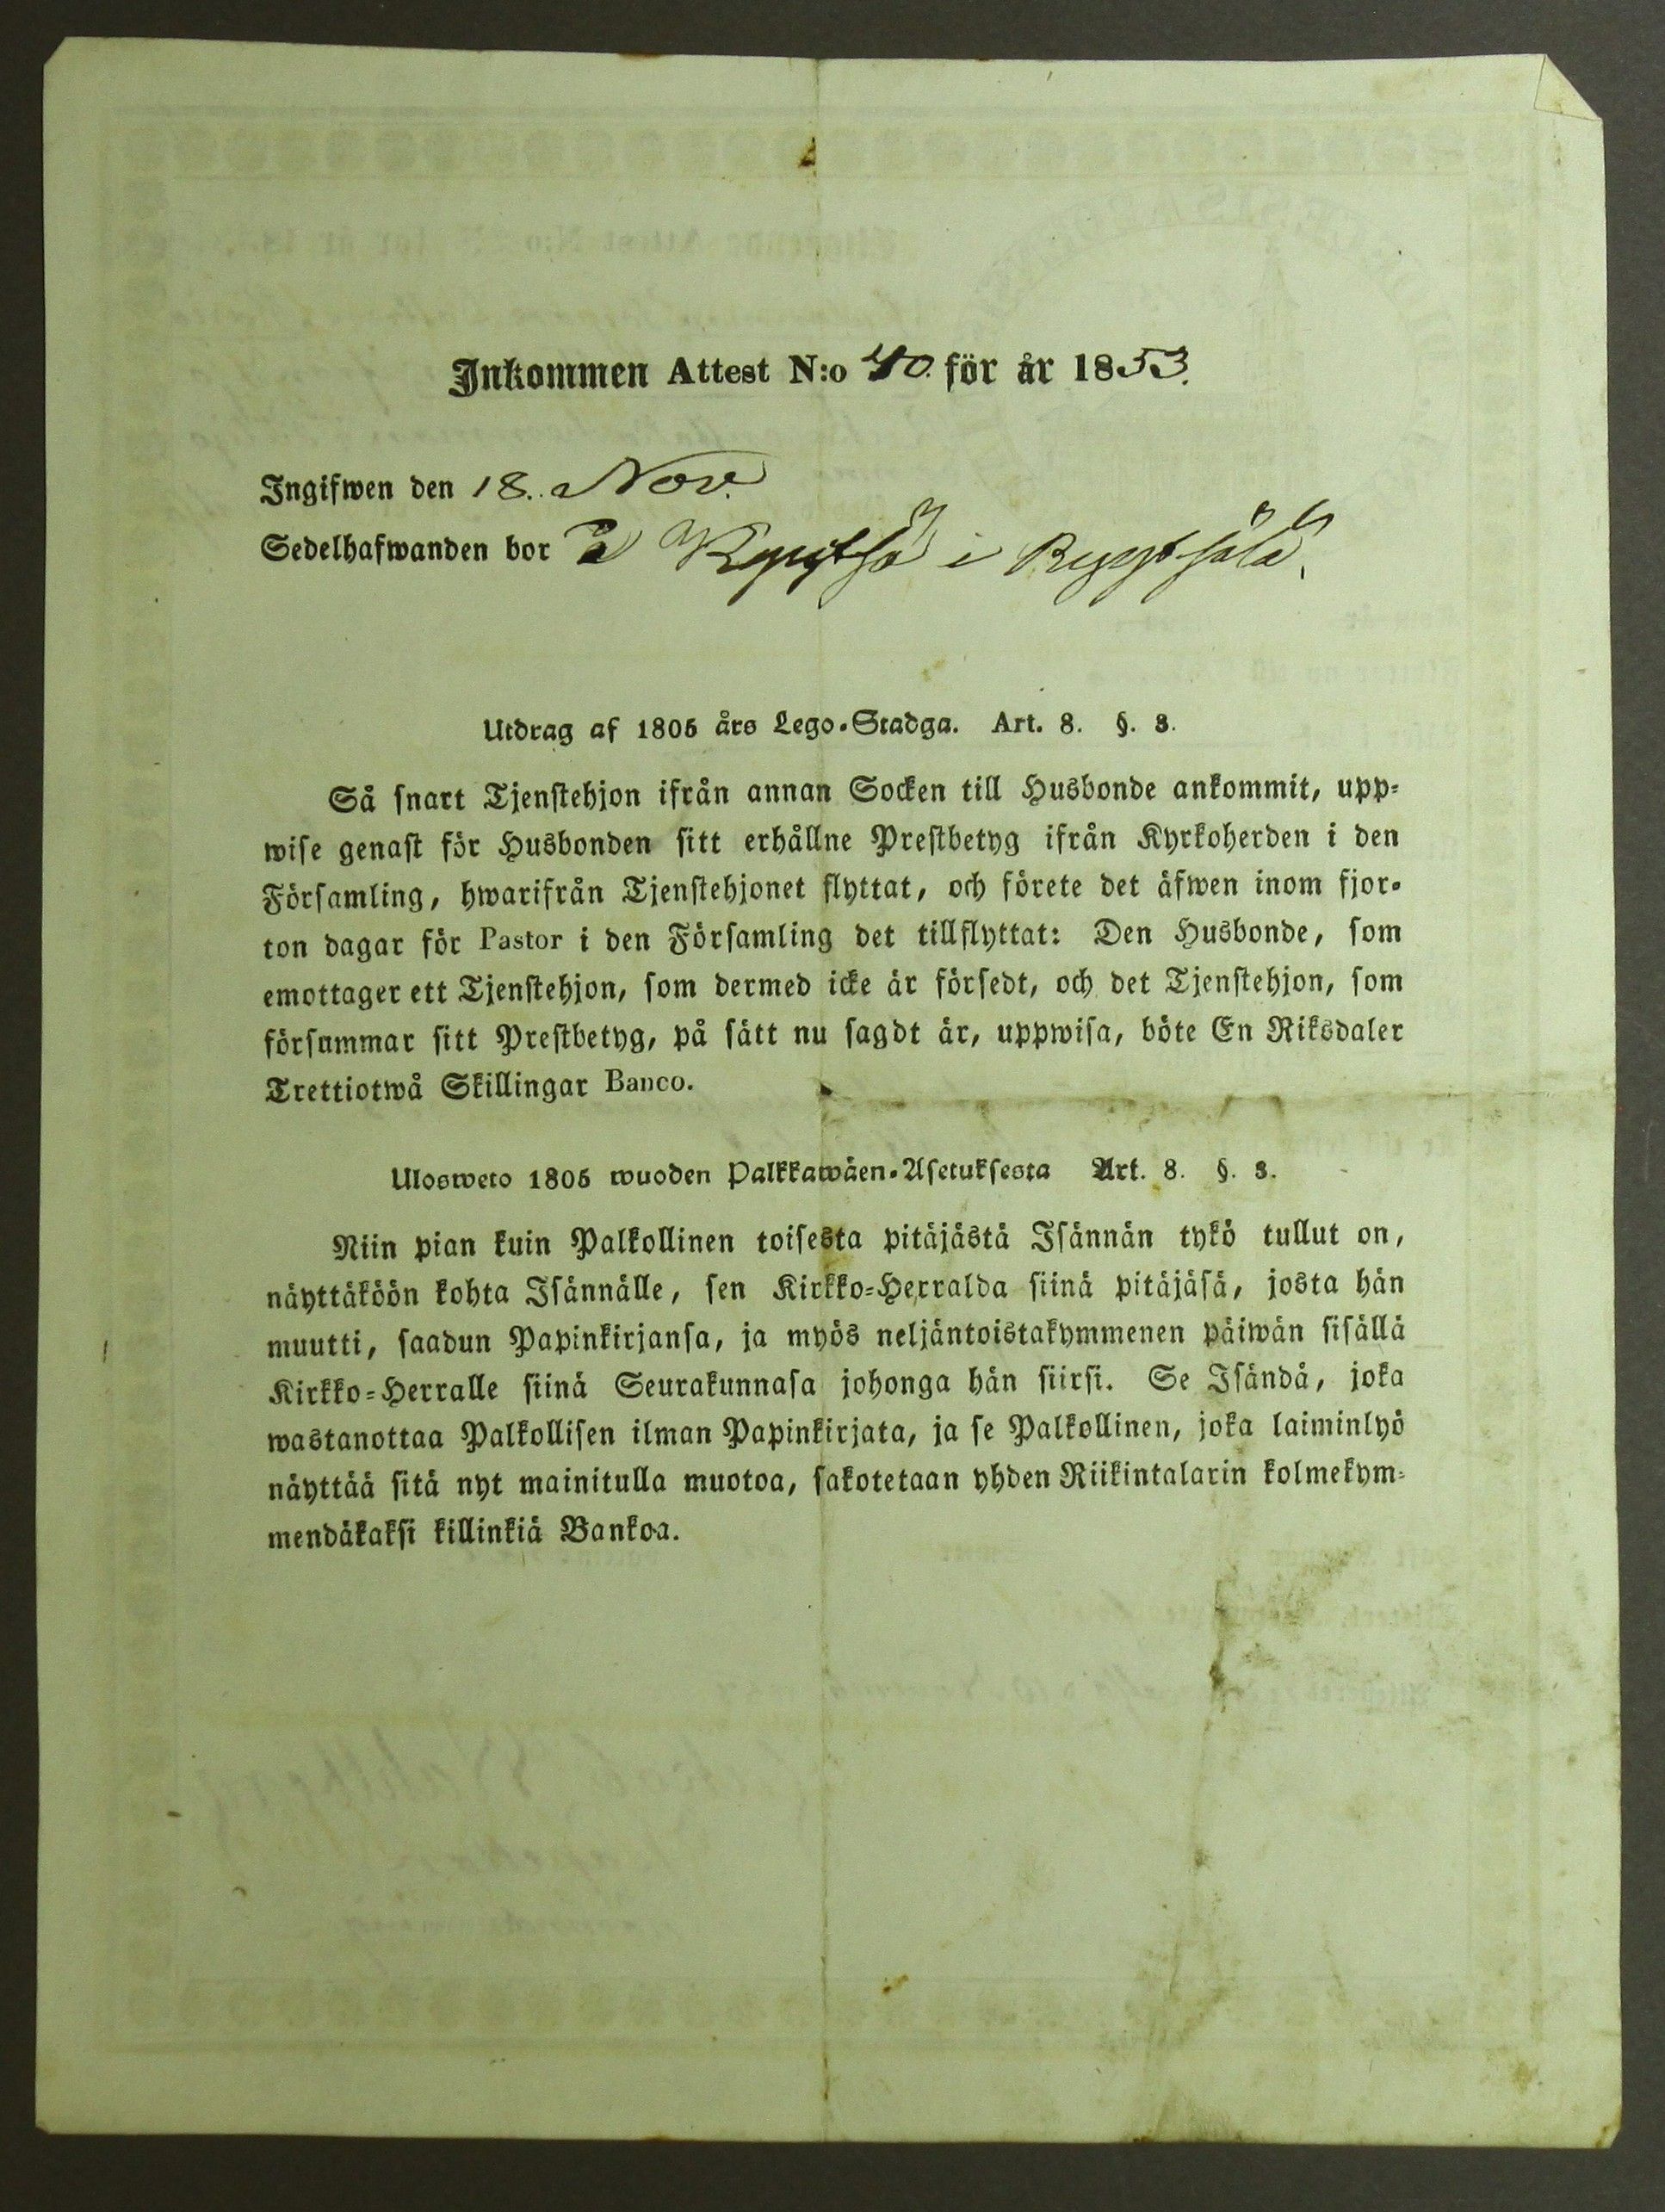 Inkommen Attest N:o 40. för år 1853.
Ingifwen den 18. Nov.
Sedelhafwanden bor å i
Utdrag af 1805 års Lego-Stadga. Art. 8. §. 3.
Så snart Tjenstehjon ifrån annan Socken till Husbonde ankommit, upp-
wise genast för Husbonden sitt erhållne Prestbetyg ifrån Kyrkoherden i den
Församling, hwarifrån Tjenstehjonet flyttat, och förete det äfwen inom fjor-
ton dagar för Pastor i den Församling det tillflyttat: Den Husbonde, som
emottager ett Tjenstehjon, som dermed icke är försedt, och det Tjenstehjon, som
försummar sitt Prestbetyg, på sätt nu sagdt är, uppwisa, böte En Riksdaler
Trettiotwå Skillingar Banco.
Ulosweto 1805 wuoden Palkkawäen-Asetuksesta Art. 8. §. 3.
Niin pian kuin Palkollinen toisesta pitäjästä Isännän tykö tullut on,
näyttäköön kohta Isännälle, sen Kirkko-Herralda siinä pitäjäsä, josta hän
muutti, saadun Papinkirjansa, ja myös neljäntoistakymmenen päiwän sisällä
Kirkko-Herralle siinä Seurakunnasa johonga hän siirsi. Se Isändä, joka
wastanottaa Palkollisen ilman Papinkirjata, ja se Palkollinen, joka laiminlyö
näyttää sitä nyt mainitulla muotoa, sakotetaan yhden Riikintalarin kolmekym-
mendäkaksi killinkiä Bankoa.